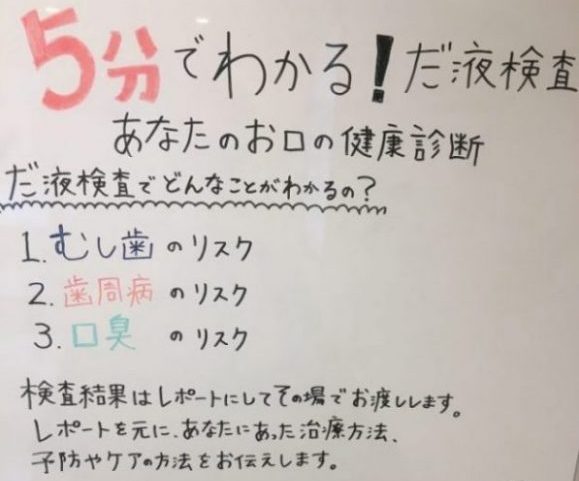 5分でわかる!だ液検査
あなたのお口の健康診断
だ液検査でどんなことがわかるの?
1.むし歯のリスク
2.歯周病のリスク
3.口臭のリスク
検査結果はレポートにしてその場でお渡しします。
レポートを元に、あなたにあった治療方法、
予防やケアの方法をお伝えします。